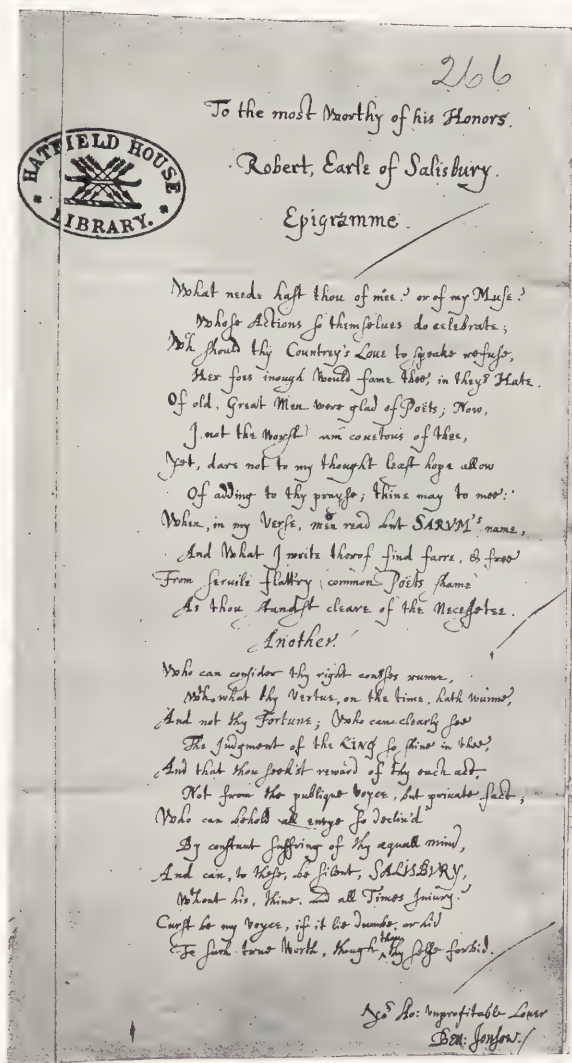 266
To the most Worthy of his Honors.
HATFIELD HOUSE
LIBRARY.
Robert, Earle of Salisbury.
Epigramme.
What neede hast thou of mee? or of my Muse?
Whose Actions so themselues do celebrate;
Wch should thy Countrey's Loue to speake refuse,
Her foes inough would fame thee, in theyr Hate.
Of old, Great Men were glad of Poëts; Now,
I, not the worst am couetous of thee,
Yet, dare not to my thought least hope allow
Of adding to thy prayse; thine may to mee:
When, in my Verse, men read but SARVM's name,
And what I write therof find farre, & free
From seruile flattry common Poëts shame
As thou standst cleare of the Necessitee.
Another.
Who can consider thy right courses runne,
Wth what thy Vertue, on the time, hath wunne,
And not thy Fortune; Who can clearly see
The Judgment of the KING so shine in thee,
And that thou seek'st reward of thy each act,
Not from the publique voyce, but private fact;
Who can behold all enuye so declin'd
By constant suffring of thy æquall mind,
And can, to these, be silent, SALISBVRY,
Wthout his, thine, and all Times Iniury?
Curst be my voyce, if it lie dumbe, or hid
To such true Worth, though thou thy selfe forbid.
Yor Ho: vnprofitable Louer
Ben: Jonson.